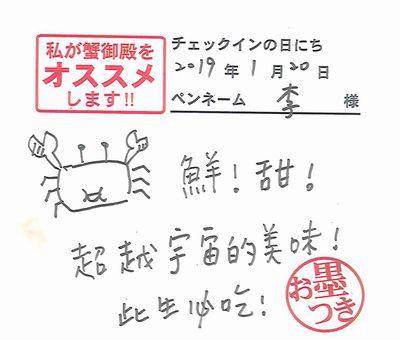 私が蟹御殿を
オススメ
します!!
チェックインの日にち
2019年1月20日
ペンネーム 李 様
鮮!甜!
超越宇宙的美味!
此生必吃!
お墨つき